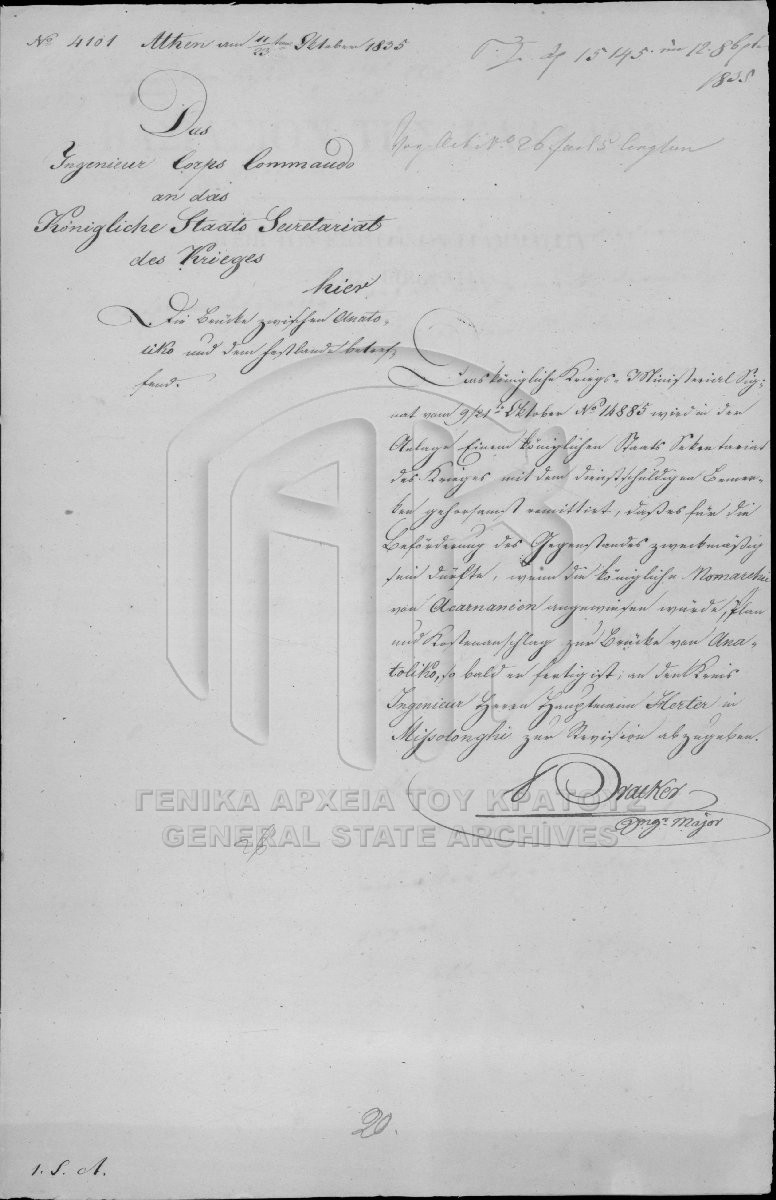 No 4101 Athen am 11/23ten Oktober 1835
15145 12 8b
1835
Das
Ingenieur Corps Commando
an das
Königliche Staats Secretariat
des Krieges
hier
Die Brücke zwischen Anato-
liko und dem Festlande betref-
fend.
Das königliche Kriegs-Ministerial Sig-
nat vom 9/21ten Oktober No 14885 wird in der
Anlage Einem königlichen Staats Sekretariat
des Krieges mit dem dienstschuldigen Bemer-
ken gehorsamst remittirt, daß es für die
Beförderung des Gegenstandes zweckmäßig
sein dürfte, wenn die königliche Nomarchie
von Acarnanien angewiesen würde, Plan
und Kostenanschlag zur Brücke von Ana-
toliko, so bald er fertig ist, an den Kreis
Ingenieur Herrn Hauptmann Herter in
Missolonghi zur Revision abzugeben.
Ingr. Major
ΓΕΝΙΚΑ ΑΡΧΕΙΑ ΤΟΥ ΚΡΑΤΟΥΣ
GENERAL STATE ARCHIVES
20.
1. S. A.